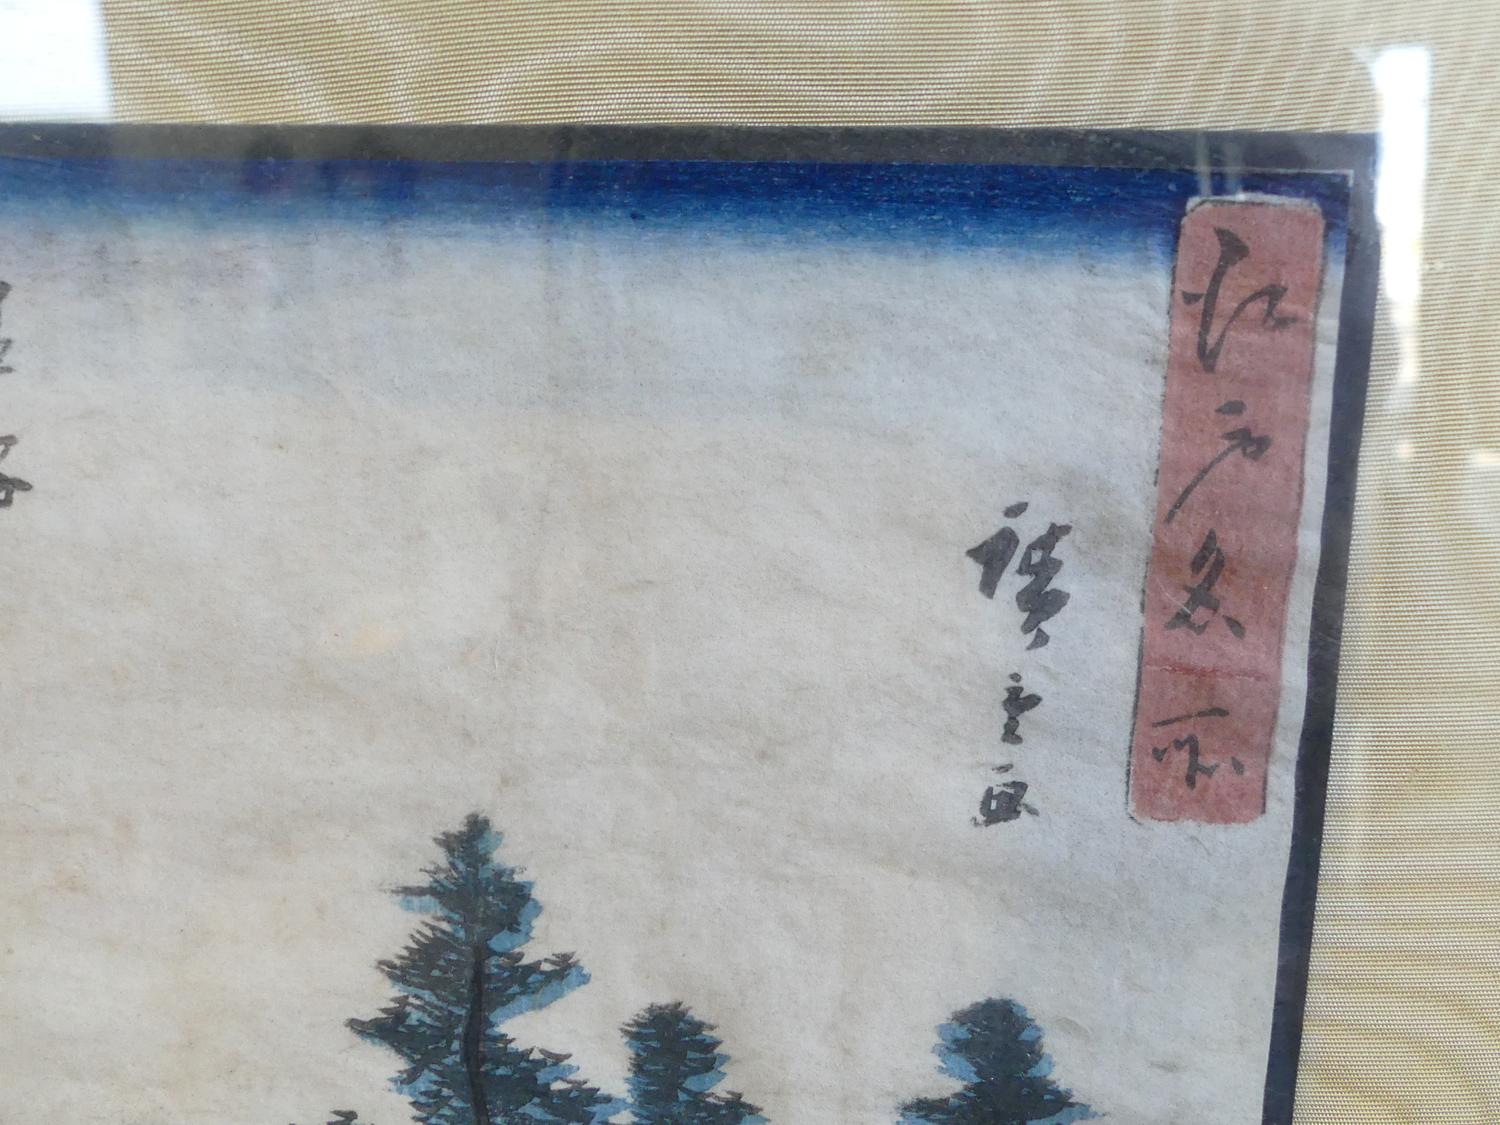 江戸名所
廣重画